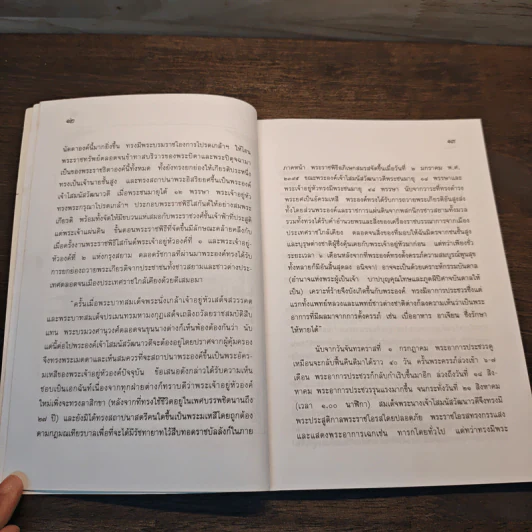 ๑๒
นัดดาองค์นี้มากยิ่งขึ้น ทรงมีพระบรมราชโองการโปรดเกล้าฯ ให้โอน
พระราชทรัพย์ตลอดจนข้าทาสบริวารของพระบิดาและพระปิตุจฉามา
เป็นของพระราชธิดาองค์นี้ทั้งหมด ทั้งยังทรงยกย่องให้เกียรติประหนึ่ง
ทรงเป็นเจ้านายชั้นสูง และทรงสถาปนาพระอิสริยยศขึ้นเป็นพระองค์
เจ้าโสมนัสวัฒนาวดี เมื่อพระชนมายุได้ ๑๒ พรรษา พระเจ้าอยู่หัว
ทรงพระกรุณาโปรดเกล้าฯ ประกอบพระราชพิธีโสกันต์ให้อย่างสมพระ
เกียรติ พร้อมทั้งจัดให้มีขบวนแห่เสมอกับพระราชวงศ์ชั้นเจ้าฟ้าที่ประสูติ
แต่พระเจ้าแผ่นดิน ขั้นตอนพระราชพิธีที่จัดขึ้นมีลักษณะคล้ายคลึงกับ
เมื่อครั้งงานพระราชพิธีโสกันต์พระเจ้าอยู่หัวองค์ที่ ๑ และพระเจ้าอยู่-
หัวองค์ที่ ๒ แห่งกรุงสยาม ตลอดรัชกาลที่ผ่านมาพระองค์ทรงได้รับ
การยกย่องถวายพระเกียรติจากประชาชนทั้งชาวสยามและชาวต่างประ-
เทศตลอดจนเมืองประเทศราชใกล้เคียงด้วยดีเสมอมา
"ครั้นเมื่อพระบาทสมเด็จพระนั่งเกล้าเจ้าอยู่หัวเสด็จสวรรคต
และพระบาทสมเด็จปรเมนทรมหามกุฎเสด็จเถลิงถวัลยราชสมบัติสืบ
แทน พระบรมวงศานุวงศ์ตลอดจนขุนนางต่างก็เห็นพ้องต้องกันว่า นับ
แต่นี้ต่อไปพระองค์เจ้าโสมนัสวัฒนาวดีจะต้องอยู่โดยปราศจากผู้คุ้มครอง
จึงทรงพระเมตตาและเห็นสมควรที่จะสถาปนาพระองค์ขึ้นเป็นพระอัคร-
มเหสีของพระเจ้าอยู่หัวองค์ปัจจุบัน ข้อเสนอดังกล่าวได้รับความเห็น
ชอบเป็นเอกฉันท์เนื่องจากทุกฝ่ายต่างก็ทราบดีว่าพระเจ้าอยู่หัวองค์
ใหม่เพิ่งจะทรงลาสิกขา (หลังจากที่ทรงใช้ชีวิตอยู่ในเพศบรรพชิตนานถึง
๒๗ ปี) และยังมิได้ทรงสถาปนาสตรีคนใดขึ้นเป็นพระมเหสีโดยถูกต้อง
ตามกฎมณเฑียรบาลเพื่อที่จะได้มีรัชทายาทไว้สืบทอดราชบัลลังก์ในภาย
๑๓
ภาคหน้า พระราชพิธีอภิเษกสมรสจัดขึ้นเมื่อวันที่ ๒ มกราคม พ.ศ.
ขณะพระองค์เจ้าโสมนัสวัฒนาวดีพระชนมายุ ๑๘ พรรษาและ
พระเจ้าอยู่หัวทรงมีพระชนมายุ ๔๘ พรรษา นับจากวาระที่ทรงดำรง
พระยศเป็นอัครมเหสี พระองค์ทรงได้รับการถวายพระเกียรติอันสูงส่ง
ทั้งโดยส่วนพระองค์และราชการแผ่นดินจากพสกนิกรชาวสยามทั้งมวล
รวมทั้งทรงได้รับคำอำนวยพรและสิ่งของเครื่องราชบรรณาการจากเมือง
ประเทศราชใกล้เคียง ตลอดจนสิ่งของที่มอบให้ฉันมิตรจากชนชั้นสูง
และบุรุษต่างชาติผู้ซึ่งคุ้นเคยกับพระเจ้าอยู่หัวมาก่อน แต่ทว่าเพียงชั่ว
ระยะเวลา ๖ เดือนหลังจากที่พระองค์ทรงตั้งครรภ์ความสมบูรณ์พูนสุข
ทั้งหลายก็มีอันสิ้นสุดลง อนิจจา! อาจจะเป็นด้วยเคราะห์กรรมบันดาล
(อำนาจแห่งพระผู้เป็นเจ้า บาปบุญคุณโทษและภูตผีปีศาจบันดาลให้
เป็น) เคราะห์ร้ายจึงบังเกิดขึ้นกับพระองค์ ทรงมีอาการประชวรซึ่งแต่
แรกทั้งแพทย์หลวงและแพทย์ชาวต่างชาติต่างก็ลงความเห็นว่าเป็นพระ
อาการที่มีผลมาจากการตั้งครรภ์ เช่น เบื่ออาหาร อาเจียน ซึ่งรักษา
ให้หายได้"
นับจากวันจันทร์วาระที่ ๑ กรกฎาคม พระอาการประชวรดู
เหมือนจะกลับฟื้นคืนดีมาได้ราว ๔๐ วัน ครั้นพระครรภ์ล่วงเข้า ๖-๗
เดือน พระอาการประชวรก็กลับกำเริบขึ้นมาอีก ล่วงถึงวันที่ ๑๘ สิงหา
คม พระอาการประชวรรุนแรงมากขึ้น จนกระทั่งวันที่ ๒๑ สิงหาคม
(เวลา ๑.๐๐ นาฬิกา) สมเด็จพระนางเจ้าโสมนัสวัฒนาวดีจึงทรงมี
พระประสูติกาลพระราชโอรสโดยปลอดภัย พระราชโอรสทรงกรรแสง
และแสดงพระอาการเฉกเช่น ทารกโดยทั่วไป แต่ทว่าทรงมีพระ